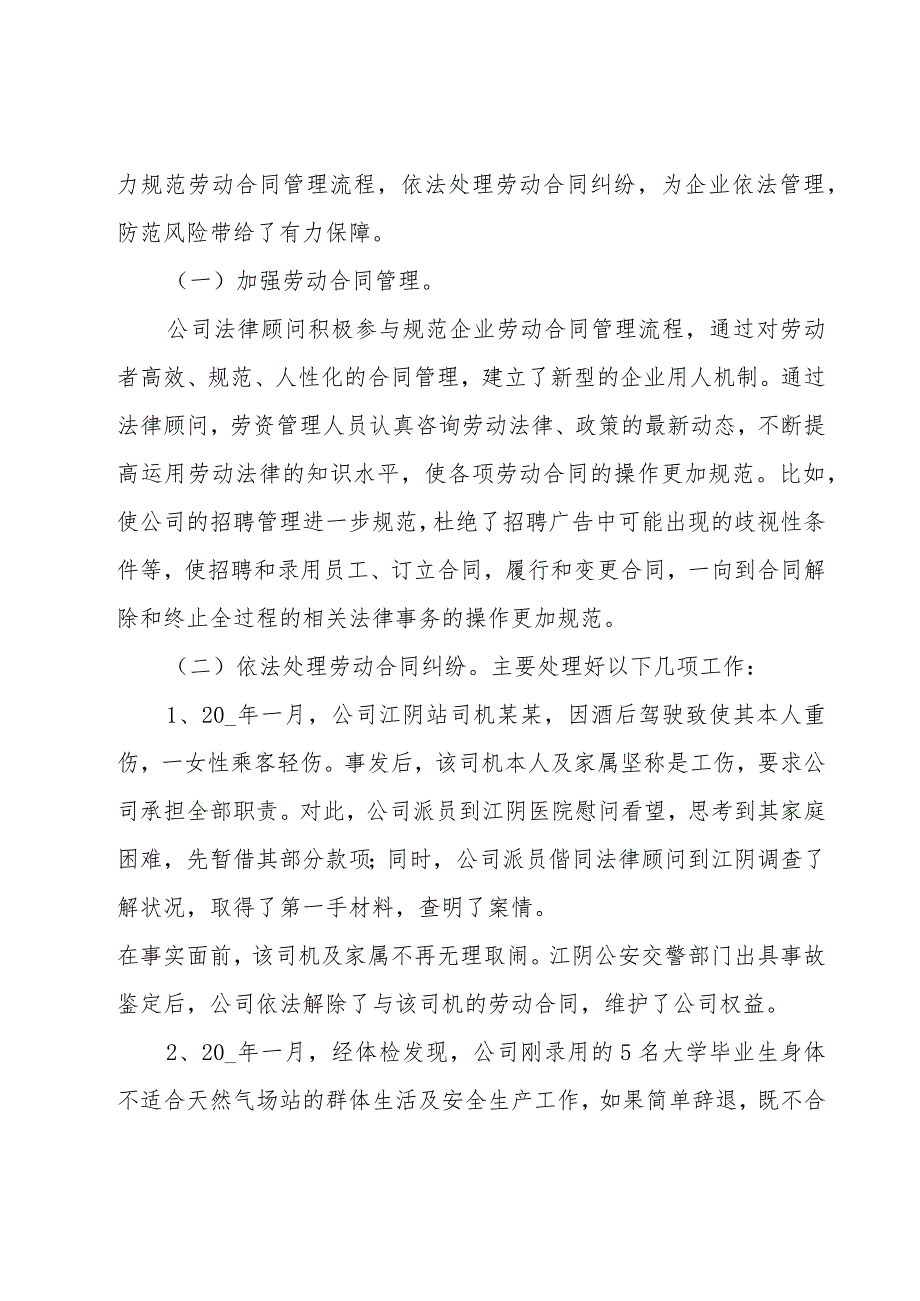 力规范劳动合同管理流程，依法处理劳动合同纠纷，为企业依法管理，
防范风险带给了有力保障。
（一）加强劳动合同管理。
公司法律顾问积极参与规范企业劳动合同管理流程，通过对劳动
者高效、规范、人性化的合同管理，建立了新型的企业用人机制。通过
法律顾问，劳资管理人员认真咨询劳动法律、政策的最新动态，不断提
高运用劳动法律的知识水平，使各项劳动合同的操作更加规范。比如，
使公司的招聘管理进一步规范，杜绝了招聘广告中可能出现的歧视性条
件等，使招聘和录用员工、订立合同，履行和变更合同，一向到合同解
除和终止全过程的相关法律事务的操作更加规范。
（二）依法处理劳动合同纠纷。主要处理好以下几项工作：
1、20_年一月，公司江阴站司机某某，因酒后驾驶致使其本人重
伤，一女性乘客轻伤。事发后，该司机本人及家属坚称是工伤，要求公
司承担全部职责。对此，公司派员到江阴医院慰问看望，思考到其家庭
困难，先暂借其部分款项；同时，公司派员偕同法律顾问到江阴调查了
解状况，取得了第一手材料，查明了案情。
在事实面前，该司机及家属不再无理取闹。江阴公安交警部门出具事故
鉴定后，公司依法解除了与该司机的劳动合同，维护了公司权益。
2、20_年一月，经体检发现，公司刚录用的 5 名大学毕业生身体
不适合天然气场站的群体生活及安全生产工作，如果简单辞退，既不合